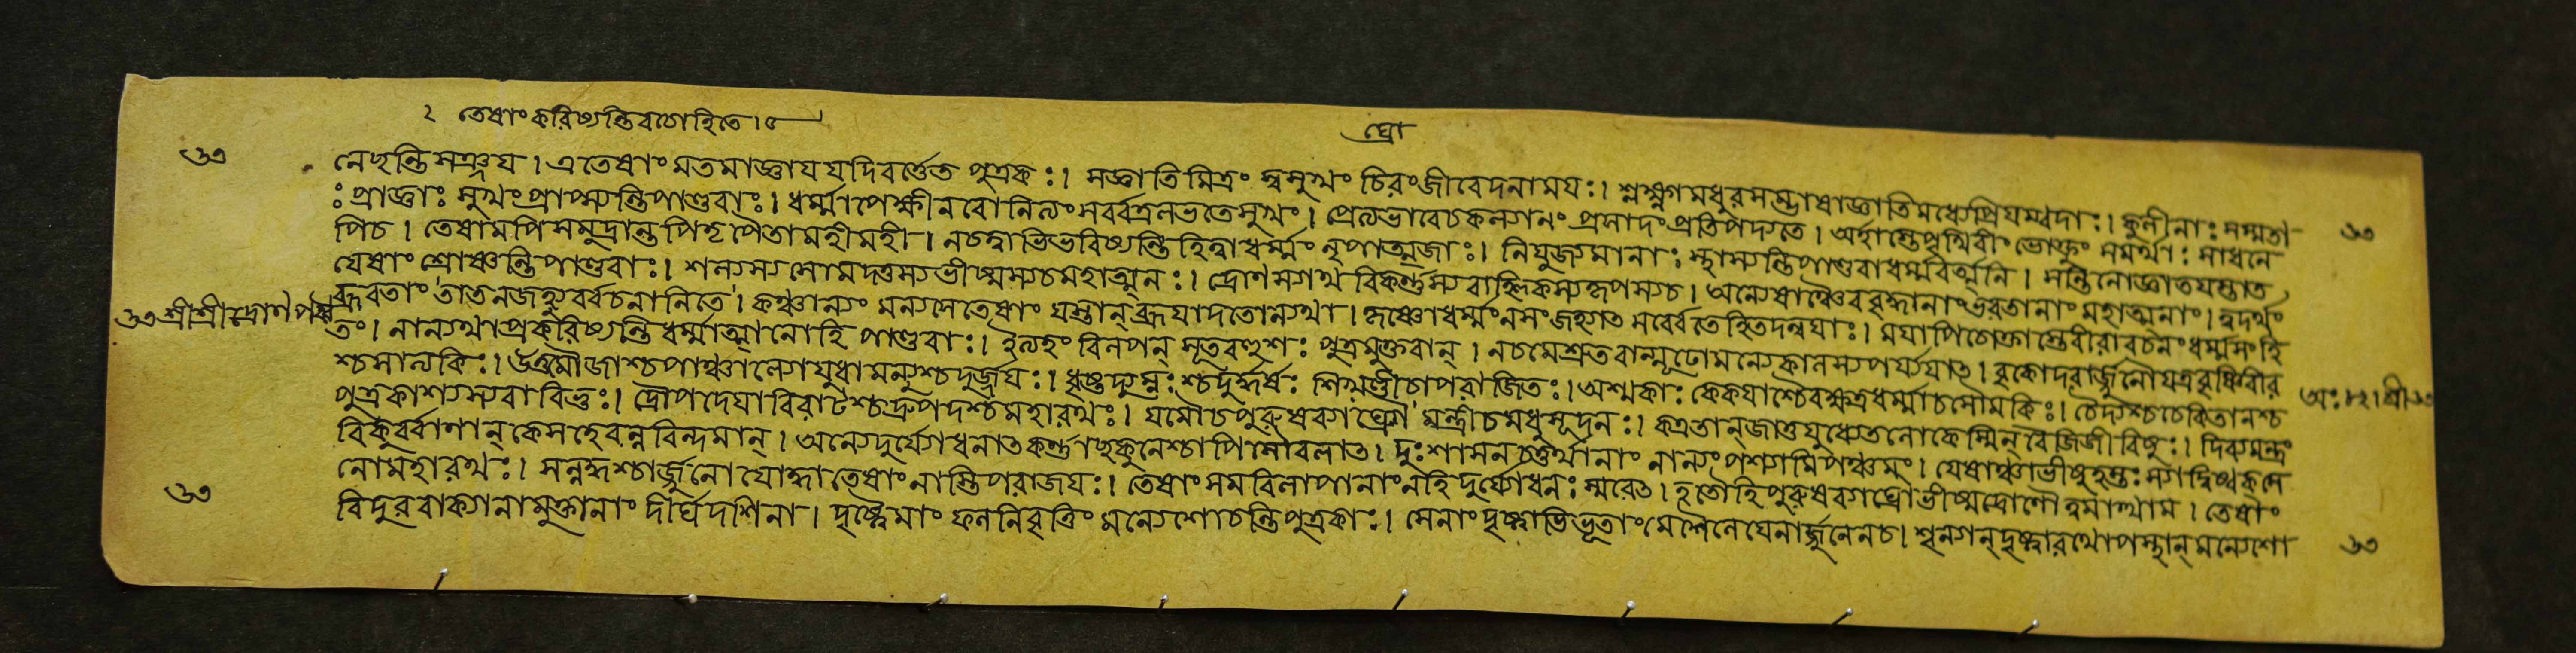 ২ তেষাং করিষ্যন্তি বশেহিতে । ৫
দ্রো
৬৩ নেছন্তি সঞ্জয । এতেষাং মতমাজ্ঞায যদি বর্ত্তেত পুত্রকঃ । সজ্ঞাতিমিত্রং স্বসুখং চিরংজীবেদনাময়ঃ । শ্লক্ষ্ণামধুরসম্ভাষাজ্ঞাতিমধ্যেপ্রিযম্বদাঃ । কুলীনাঃ সম্মতা
ঃ প্রাজ্ঞাঃ সুখং প্রাপ্স্যন্তি পাণ্ডবাঃ । ধর্ম্মাপেক্ষী নরো নিত্যং সর্ব্বত্র লভতে সুখং । প্রেত্যভাবেচ কল্যানং প্রসাদং প্রতিপদ্যতে । অর্হাস্তেপৃথিবীং ভোক্তুং সমর্থাঃ সাধনে ৬৩
পিচ । তেষামপি সমুদ্রান্তা পিতৃপৈতামহীমহী । নচত্বাভিভবিষ্যন্তি হিত্বা ধর্ম্মং নৃপাত্মজাঃ । নিযুজ্যমানাঃ স্থাস্যন্তি পাণ্ডবা ধর্ম্মবর্ত্মনি । সন্তিনো জ্ঞাতযস্তাত
যেষাং শ্রোষ্যন্তি পাণ্ডবাঃ । শল্যস্য সোমদত্তস্য ভীষ্মস্যচ মহাত্মনঃ । দ্রোণস্যাথ বিকর্ণস্য বাহ্লিকস্য কৃপস্যচ । অন্যেষাঞ্চৈব বৃদ্ধানাং ভরতানাং মহাত্মনাং । ত্বদর্থং
ব্রূবতাং তাত নজহ্যুর্বচনানিতে । কঞ্চান্যং মন্যসে তেষাং যস্তান্ ব্রূযাদতোন্যথা । কৃষ্ণোধর্ম্মং নসংজহ্যাত সর্ব্বেতে হিতদন্বযাঃ । মযাপিচোক্তাস্তেবীরাবচনং ধর্ম্মসংহি
৬৩ শ্রীশ্রীদ্রোণপর্ব্ব তং । নান্যথা প্রকরিষ্যন্তি ধর্ম্মাত্মানোহি পাণ্ডবাঃ । ইত্যহং বিলপন্ সূত বহুশঃ পুত্রমুক্তবান্ । নচমে শ্রুতবান্মূঢোমন্যেকালস্য পর্য্যযাৎ । বৃকোদরার্জ্জুনৌ যত্র বৃষ্ণিবীর
শ্চ সাত্যকিঃ । উত্তমৌজাশ্চ পাঞ্চাল্যো যুধামন্যুশ্চ দুর্জ্জযঃ । ধৃষ্টদ্যুম্নঃশ্চ দুর্দ্ধর্ষঃ শিখণ্ডীচাপরাজিতঃ । অশ্মকাঃ কেকযাশ্চৈব ক্ষত্রধর্ম্মাচ সৌমকিঃ । চৈদ্যশ্চ চেকিতানশ্চ অঃ ৮২ । শ্রী ৬৩
পুত্রকাশ্যস্যবাবিভুঃ । দ্রৌপদেযা বিরাটশ্চ দ্রুপদশ্চ মহারথঃ । যমৌচ পুরুষব্যাঘ্রৌ মন্ত্রীচ মধুসূদনঃ । কত্রতান্ জাতুযুধ্যেতলোকেস্মিন্ বৈ জিজীবিষুঃ । দিব্যমস্ত্রং
বিকুর্ব্বাণান্ কেসহেরন্নবিন্দমান্ । অন্যোদুর্যোধনাৎ কর্ণাচ্ছকুনেশ্চাপি সৌবলাৎ । দুঃশাসন চতুর্থানাং নান্যং পশ্যামি পঞ্চমং । যেষাঞ্চাভীষুহস্তঃ স্যাদ্বিষ্বক্সে
নোমহারথঃ । সন্নদ্ধশ্চার্জ্জুনো যোদ্ধাতেষাং নাস্তিপরাজযঃ । তেষাং সমবিলাপানাং নহি দুর্যোধনঃ স্মরেৎ । হতৌহি পুরুষব্যাঘ্রৌ ভীষ্মদ্রোণৌ ত্বমাত্থাম । তেষাং
৬৩ বিদুরবাক্যানামুক্তানাং দীর্ঘদর্শিনা । দৃষ্ট্বৈমাং ফলনির্বৃত্তিং মন্যে শোচন্তি পুত্রকাঃ । সেনাং দৃষ্ট্বাভিভূতাং মে শৈনেযেনার্জ্জুনেনচ । শূন্যান্ দৃষ্ট্বা রথোপস্থান্ মন্যেশো ৬৩